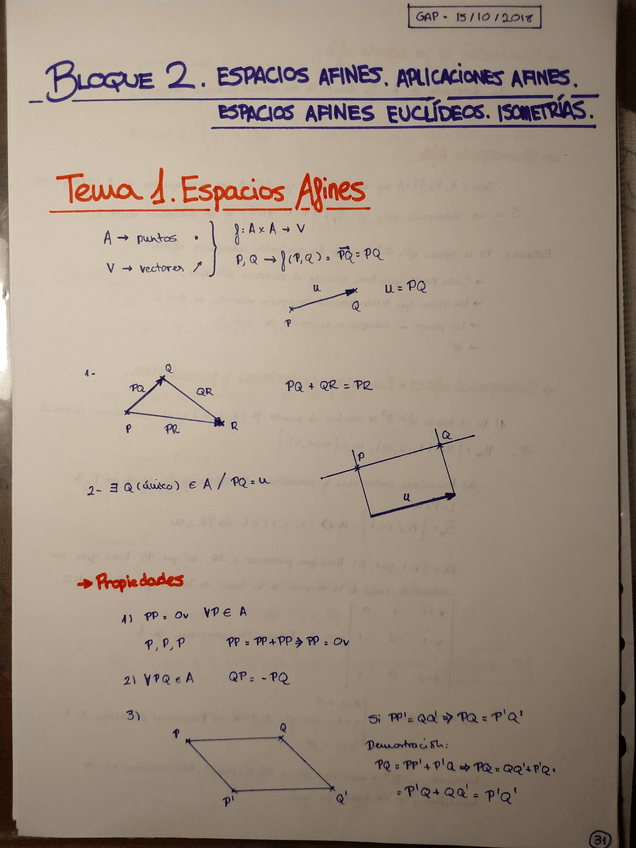 GAP - 15/10/2018
BLOQUE 2. ESPACIOS AFINES. APLICACIONES AFINES.
ESPACIOS AFINES EUCLÍDEOS. ISOMETRÍAS.
Tema 1. Espacios Afines
A → puntos •
V → vectores ↗
f: A x A → V
P, Q → f(P,Q) = PQ⃗ = PQ
u
P
Q
u = PQ
1-
Q
PQ
QR
P
PR
R
PQ + QR = PR
2- ∃ Q (único) ∈ A / PQ = u
P
Q
u
→ Propiedades
1) PP = 0v ∀P ∈ A
P, P, P PP = PP + PP ⇒ PP = 0v
2) ∀PQ ∈ A QP = -PQ
3)
P
Q
P'
Q'
Si PP' = QQ' ⇒ PQ = P'Q'
Demostración:
PQ = PP' + P'Q ⇒ PQ = QQ' + P'Q =
= P'Q + QQ' = P'Q'
31